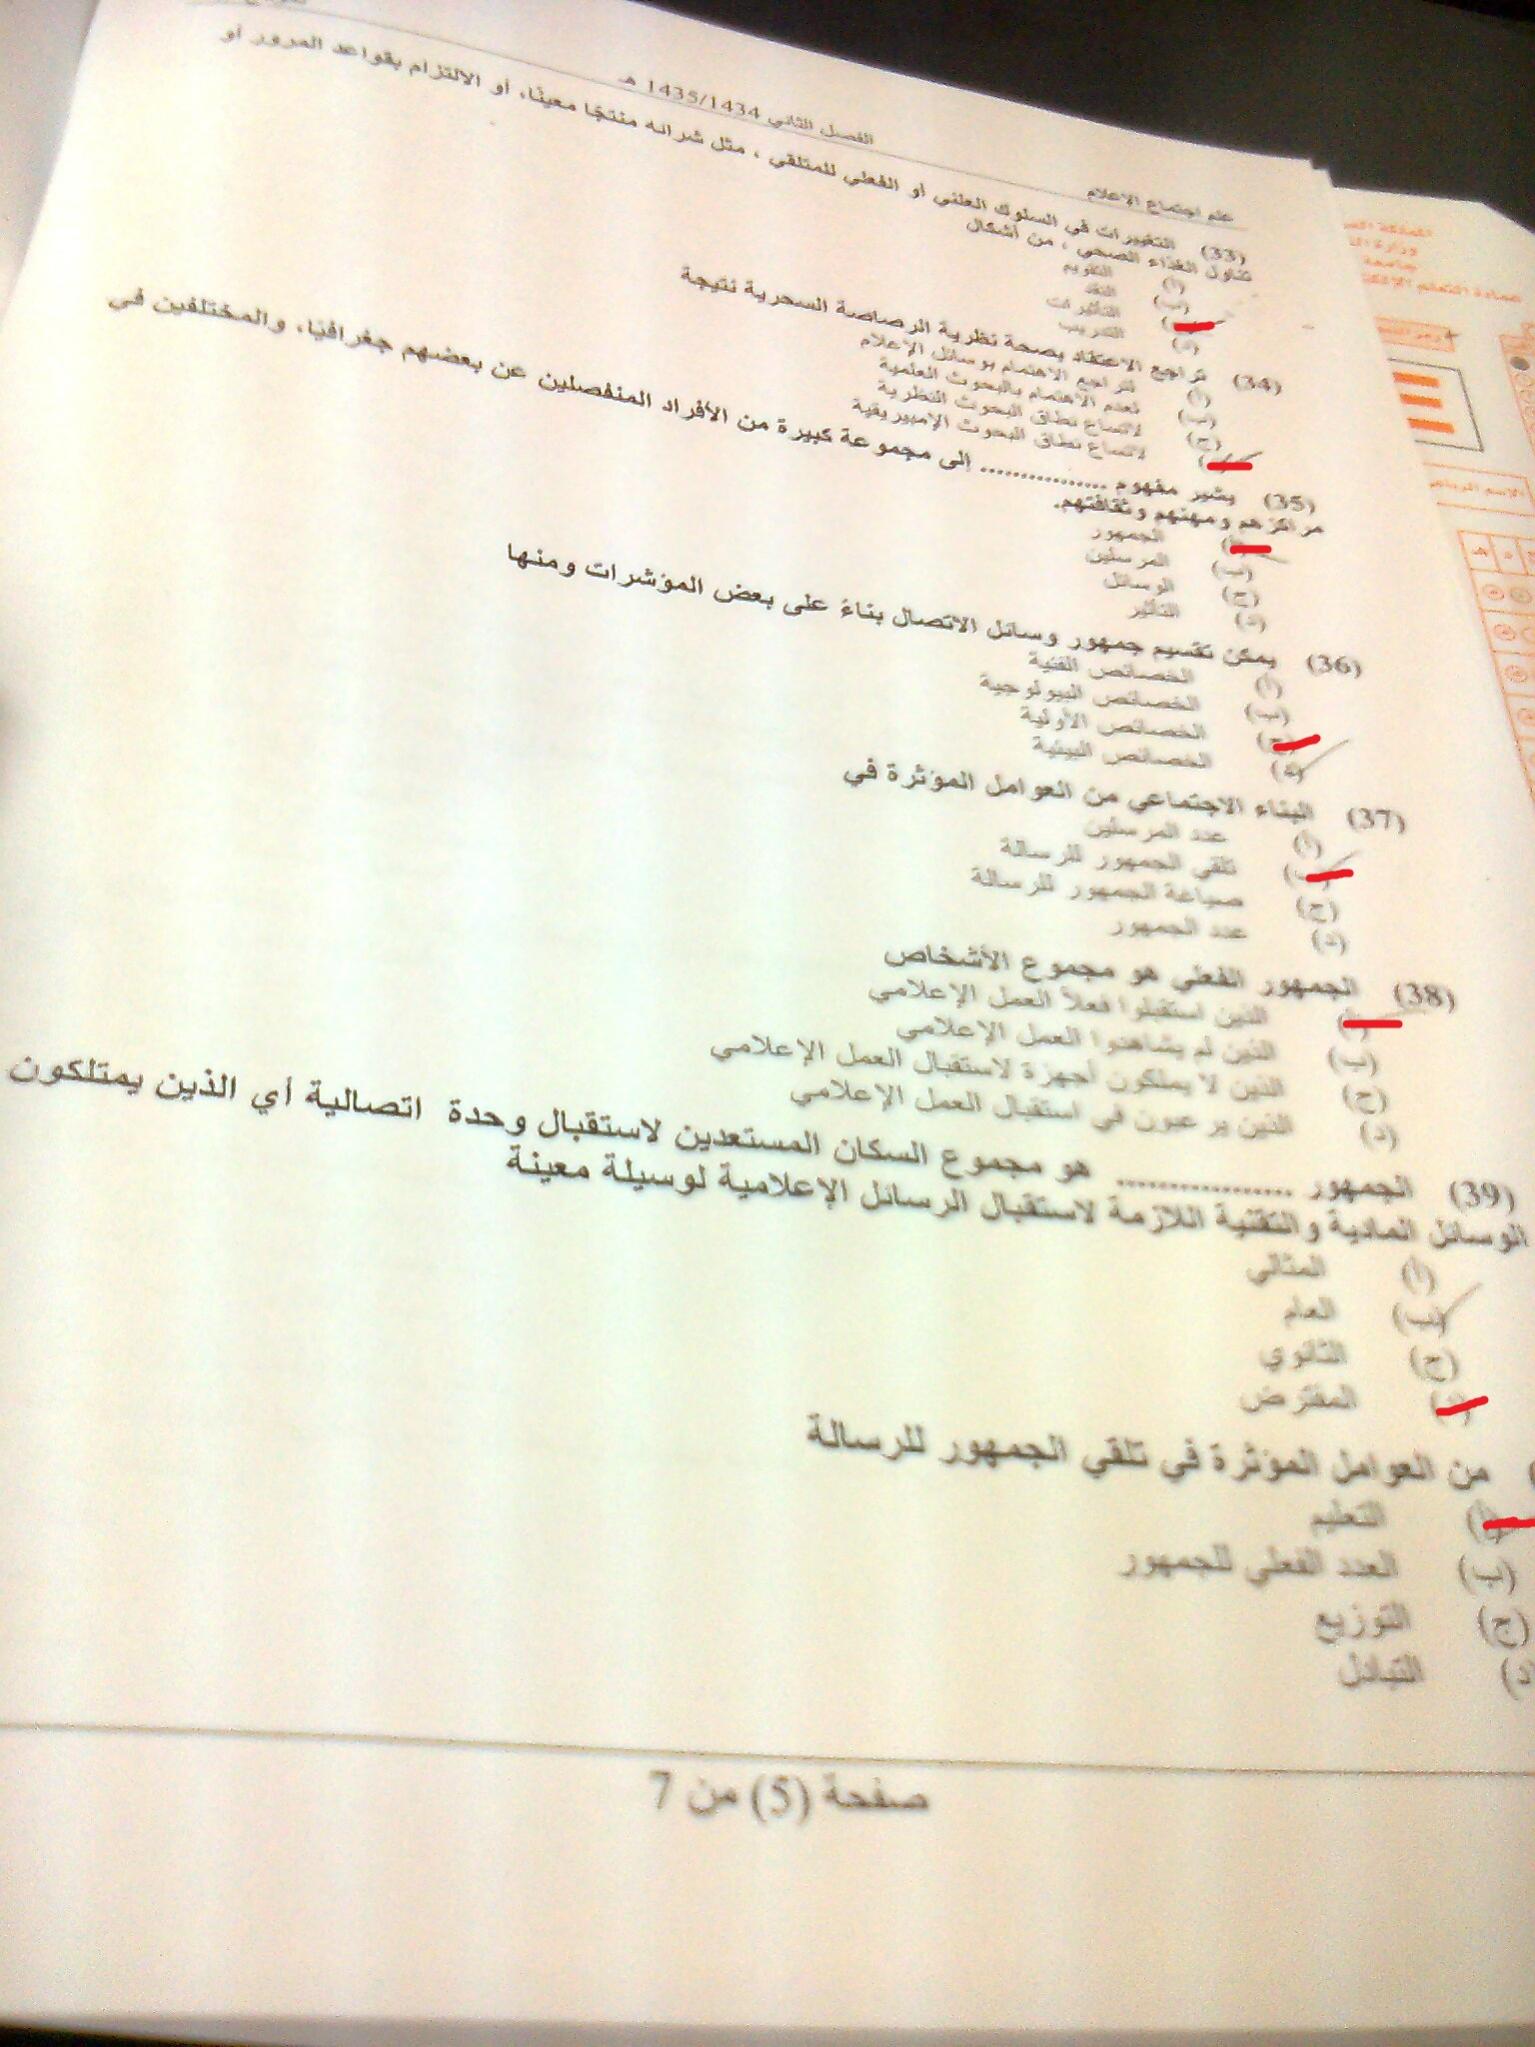 علم اجتماع الإعلام
الفصل الثاني 1435/1434 هـ
(33) التغييرات في السلوك العلني أو الفعلي للمتلقي ، مثل شرائه منتجًا معينًا، أو الالتزام بقواعد المرور أو
تناول الغذاء الصحي ، من أشكال
(أ) التقويم
(ب) النقد
التأثيرات
(د) التدريب
(34) تراجع الاعتقاد بصحة نظرية الرصاصة السحرية نتيجة
(أ) لتراجع الاهتمام بوسائل الإعلام
(ب) لعدم الاهتمام بالبحوث العلمية
(ج) لاتساع نطاق البحوث النظرية
لاتساع نطاق البحوث الإمبيريقية
(35) يشير مفهوم ................ إلى مجموعة كبيرة من الأفراد المنفصلين عن بعضهم جغرافيًا، والمختلفين في
مراكزهم ومهنهم وثقافتهم.
الجمهور
(ب) المرسلين
(ج) الوسائل
(د) التأثير
(36) يمكن تقسيم جمهور وسائل الاتصال بناءً على بعض المؤشرات ومنها
(أ) الخصائص الفنية
(ب) الخصائص البيولوجية
(ج) الخصائص الأولية
(د) الخصائص البيئية
(37) البناء الاجتماعي من العوامل المؤثرة في
(أ) عدد المرسلين
(ب) تلقي الجمهور للرسالة
(ج) صياغة الجمهور للرسالة
(د) عدد الجمهور
(38) الجمهور الفعلي هو مجموع الأشخاص
الذين استقبلوا فعلاً العمل الإعلامي
(ب) الذين لم يشاهدوا العمل الإعلامي
(ج) الذين لا يملكون أجهزة لاستقبال العمل الإعلامي
(د) الذين يرغبون في استقبال العمل الإعلامي
(39) الجمهور ................ هو مجموع السكان المستعدين لاستقبال وحدة اتصالية أي الذين يمتلكون
الوسائل المادية والتقنية اللازمة لاستقبال الرسائل الإعلامية لوسيلة معينة
(أ) المثالي
(ب) العام
(ج) الثانوي
(د) المفترض
من العوامل المؤثرة في تلقي الجمهور للرسالة
(أ) التعليم
(ب) العدد الفعلي للجمهور
(ج) التوزيع
د) التبادل
صفحة (5) من 7